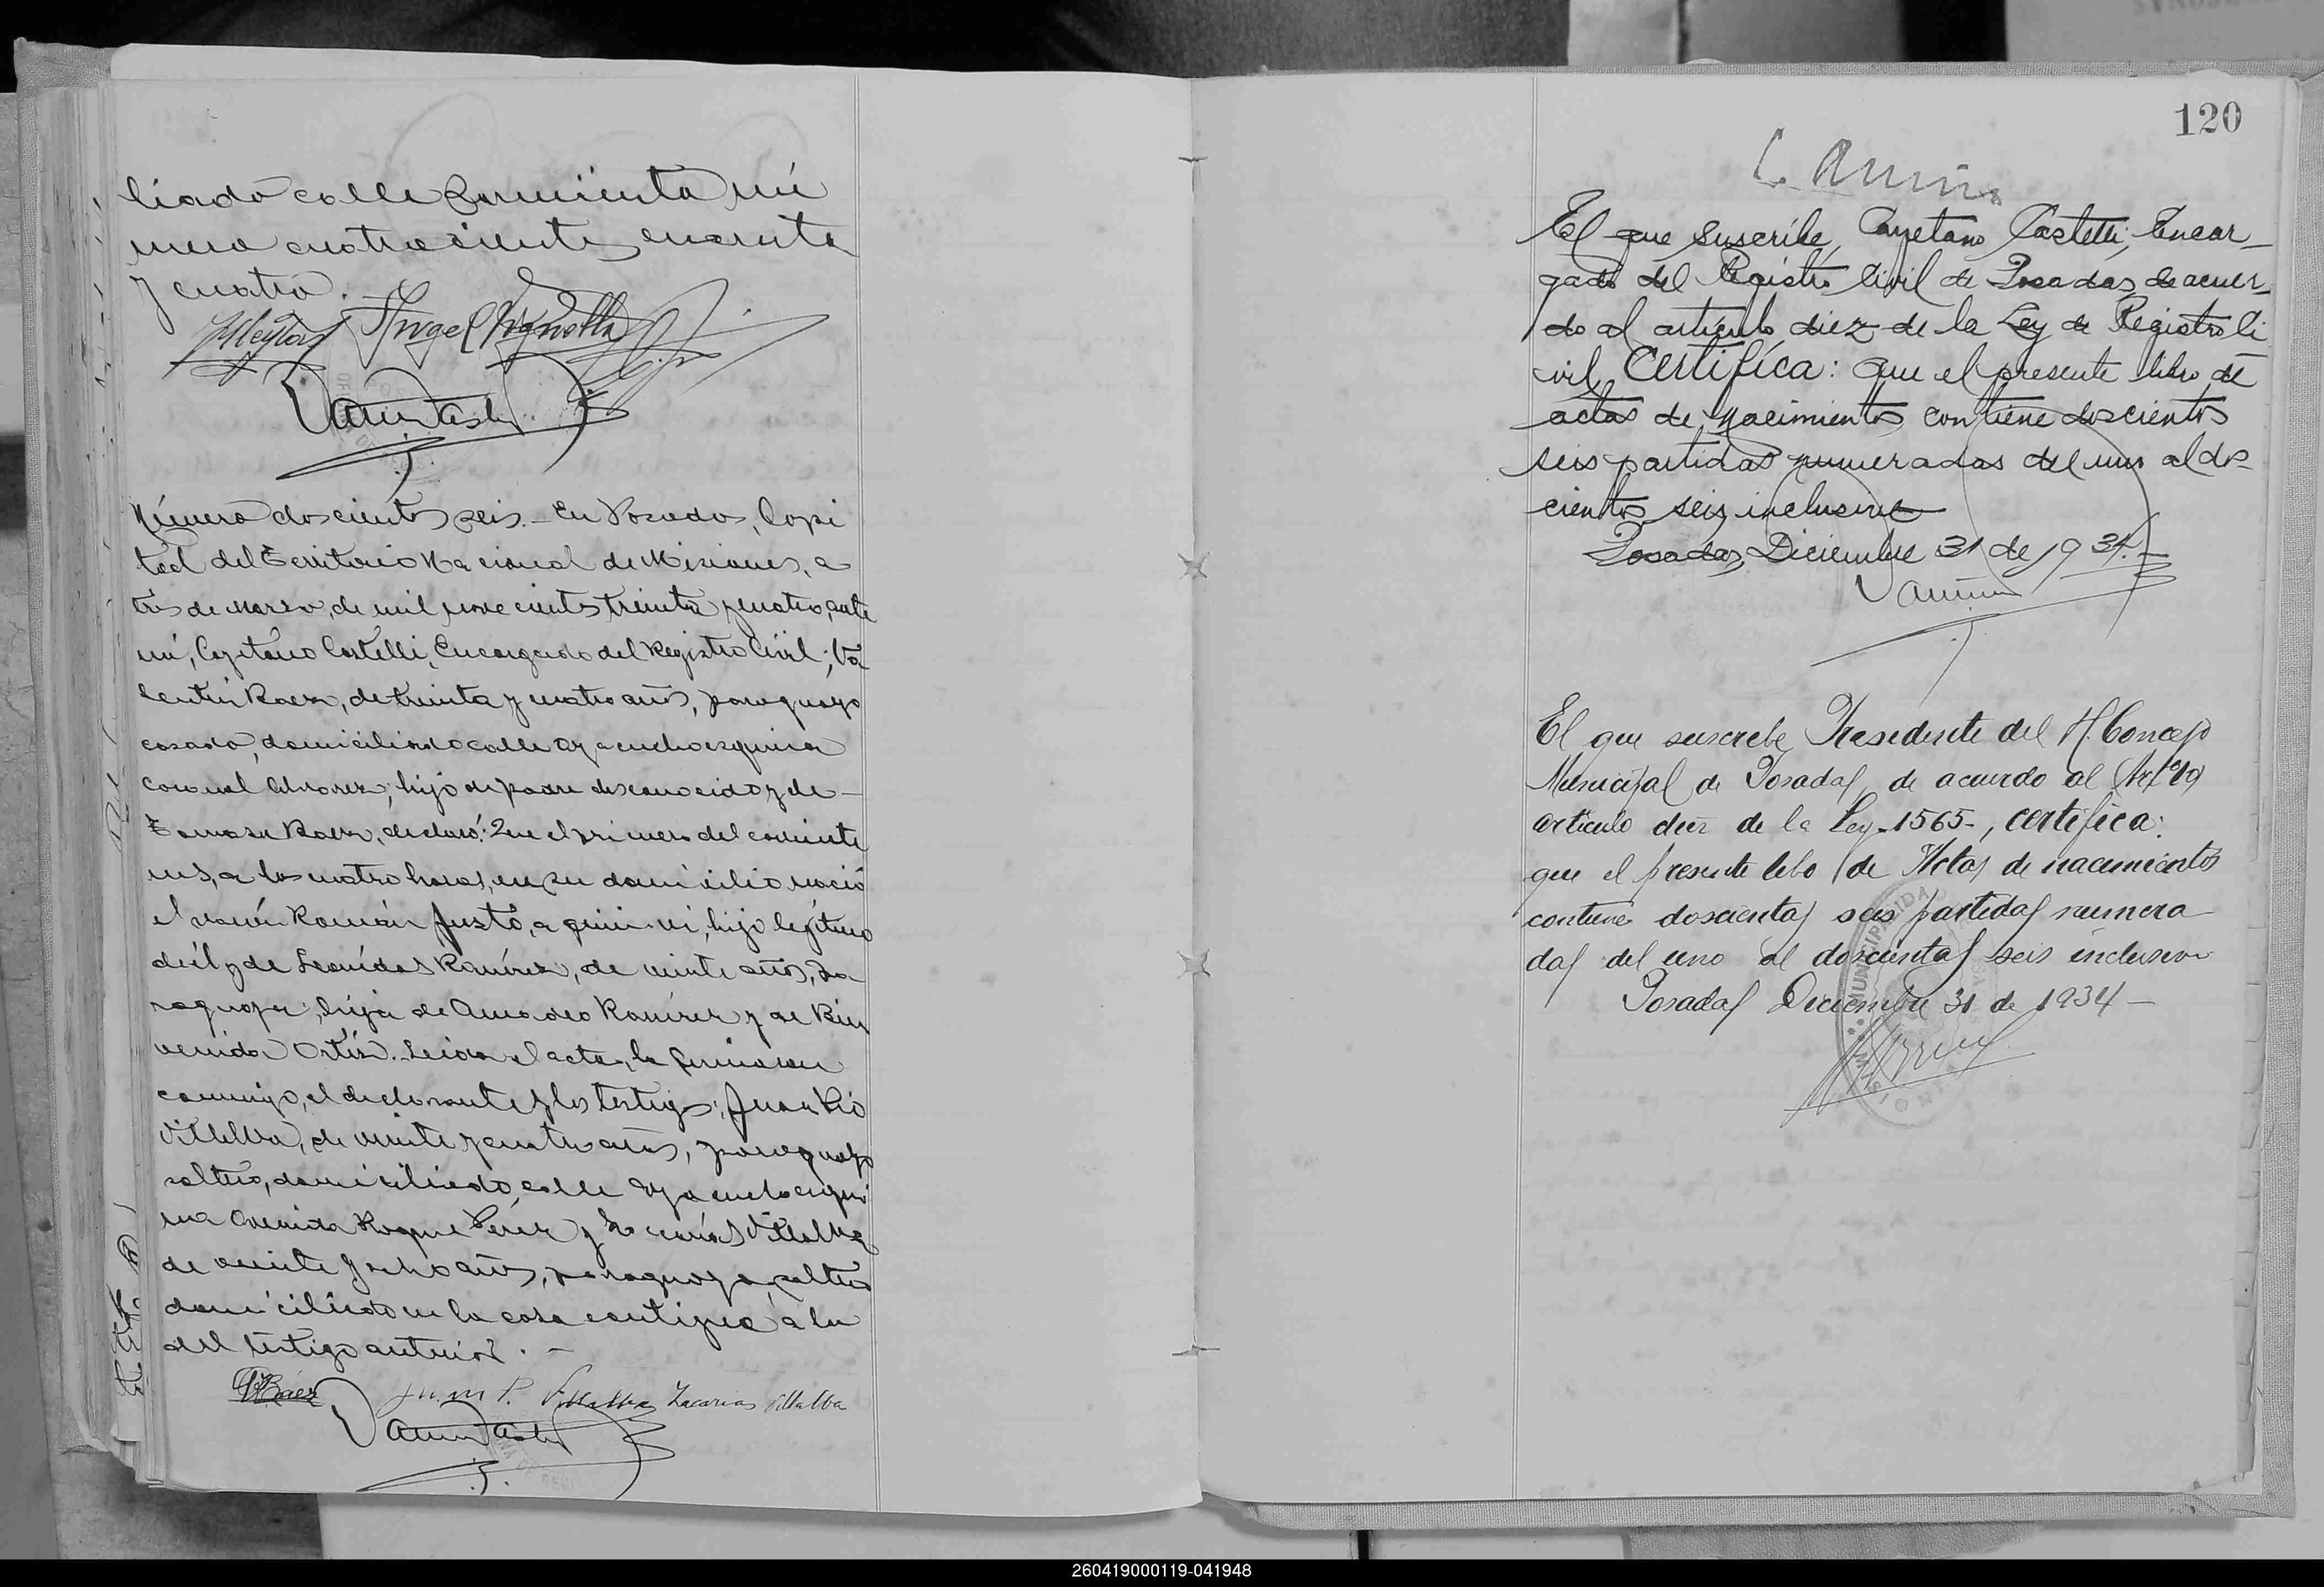 liado calle Sarmiento nú
mero cuatrocientos cuarenta
y cuatro.
Angel Vignolla
Número doscientos seis.- En Posadas, Capi
tal del Territorio Nacional de Misiones, a
tres de Marzo, de mil novecientos treinta y cuatro, ante
mí, Cayetano Castelli, Encargado del Registro Civil; Va
lentín Baez, de treinta y cuatro años, paraguayo
casado, domiciliado calle Ayacucho esquina
Coronel Alvarez; hijo de padre desconocido y de
Tomasa Baez, declaró: Que el primero del corriente
mes, a las cuatro horas, en su domicilio nació
el varón Román Justo, a quien vi, hijo legítimo
de él y de Leonídas Ramírez, de veinte años, pa
raguaya; hija de Amadeo Ramírez y de Bien
venida Ortíz. Leida el acta, la firmaron
conmigo, el declarante y los testigos: Juan Pío
Villalba, de veinte y cuatro años, paraguayo
soltero, domiciliado calle Ayacucho esqui
na Avenida Roque Pérez y Zacarías Villalba
de veinte y ocho años, paraguayo, soltero
domiciliado en la casa contigua a la
del testigo anterior. -
VBáez Juan P. Villalba Zacarias Villalba
120
El que suscribe, Cayetano Castelli, Encar-
gado del Registro Civil de Posadas, de acuer-
do al artículo diez de la Ley de Registro Ci
vil, Certifica: que el presente libro de
actas de Nacimientos contiene doscientos
seis partidas numeradas del uno al dos-
cientos seis inclusive
Posadas, Diciembre 31 de 1934.-
El que suscribe Presidente del H. Concejo
Municipal de Posadas, de acuerdo al
articulo diez de la Ley-1565-, certifica:
que el presente libo de Actas de nacimientos
contiene doscientas seis partidas numera
das del uno al doscientas seis inclusive
Posadas Diciembre 31 de 1934-
260419000119-041948